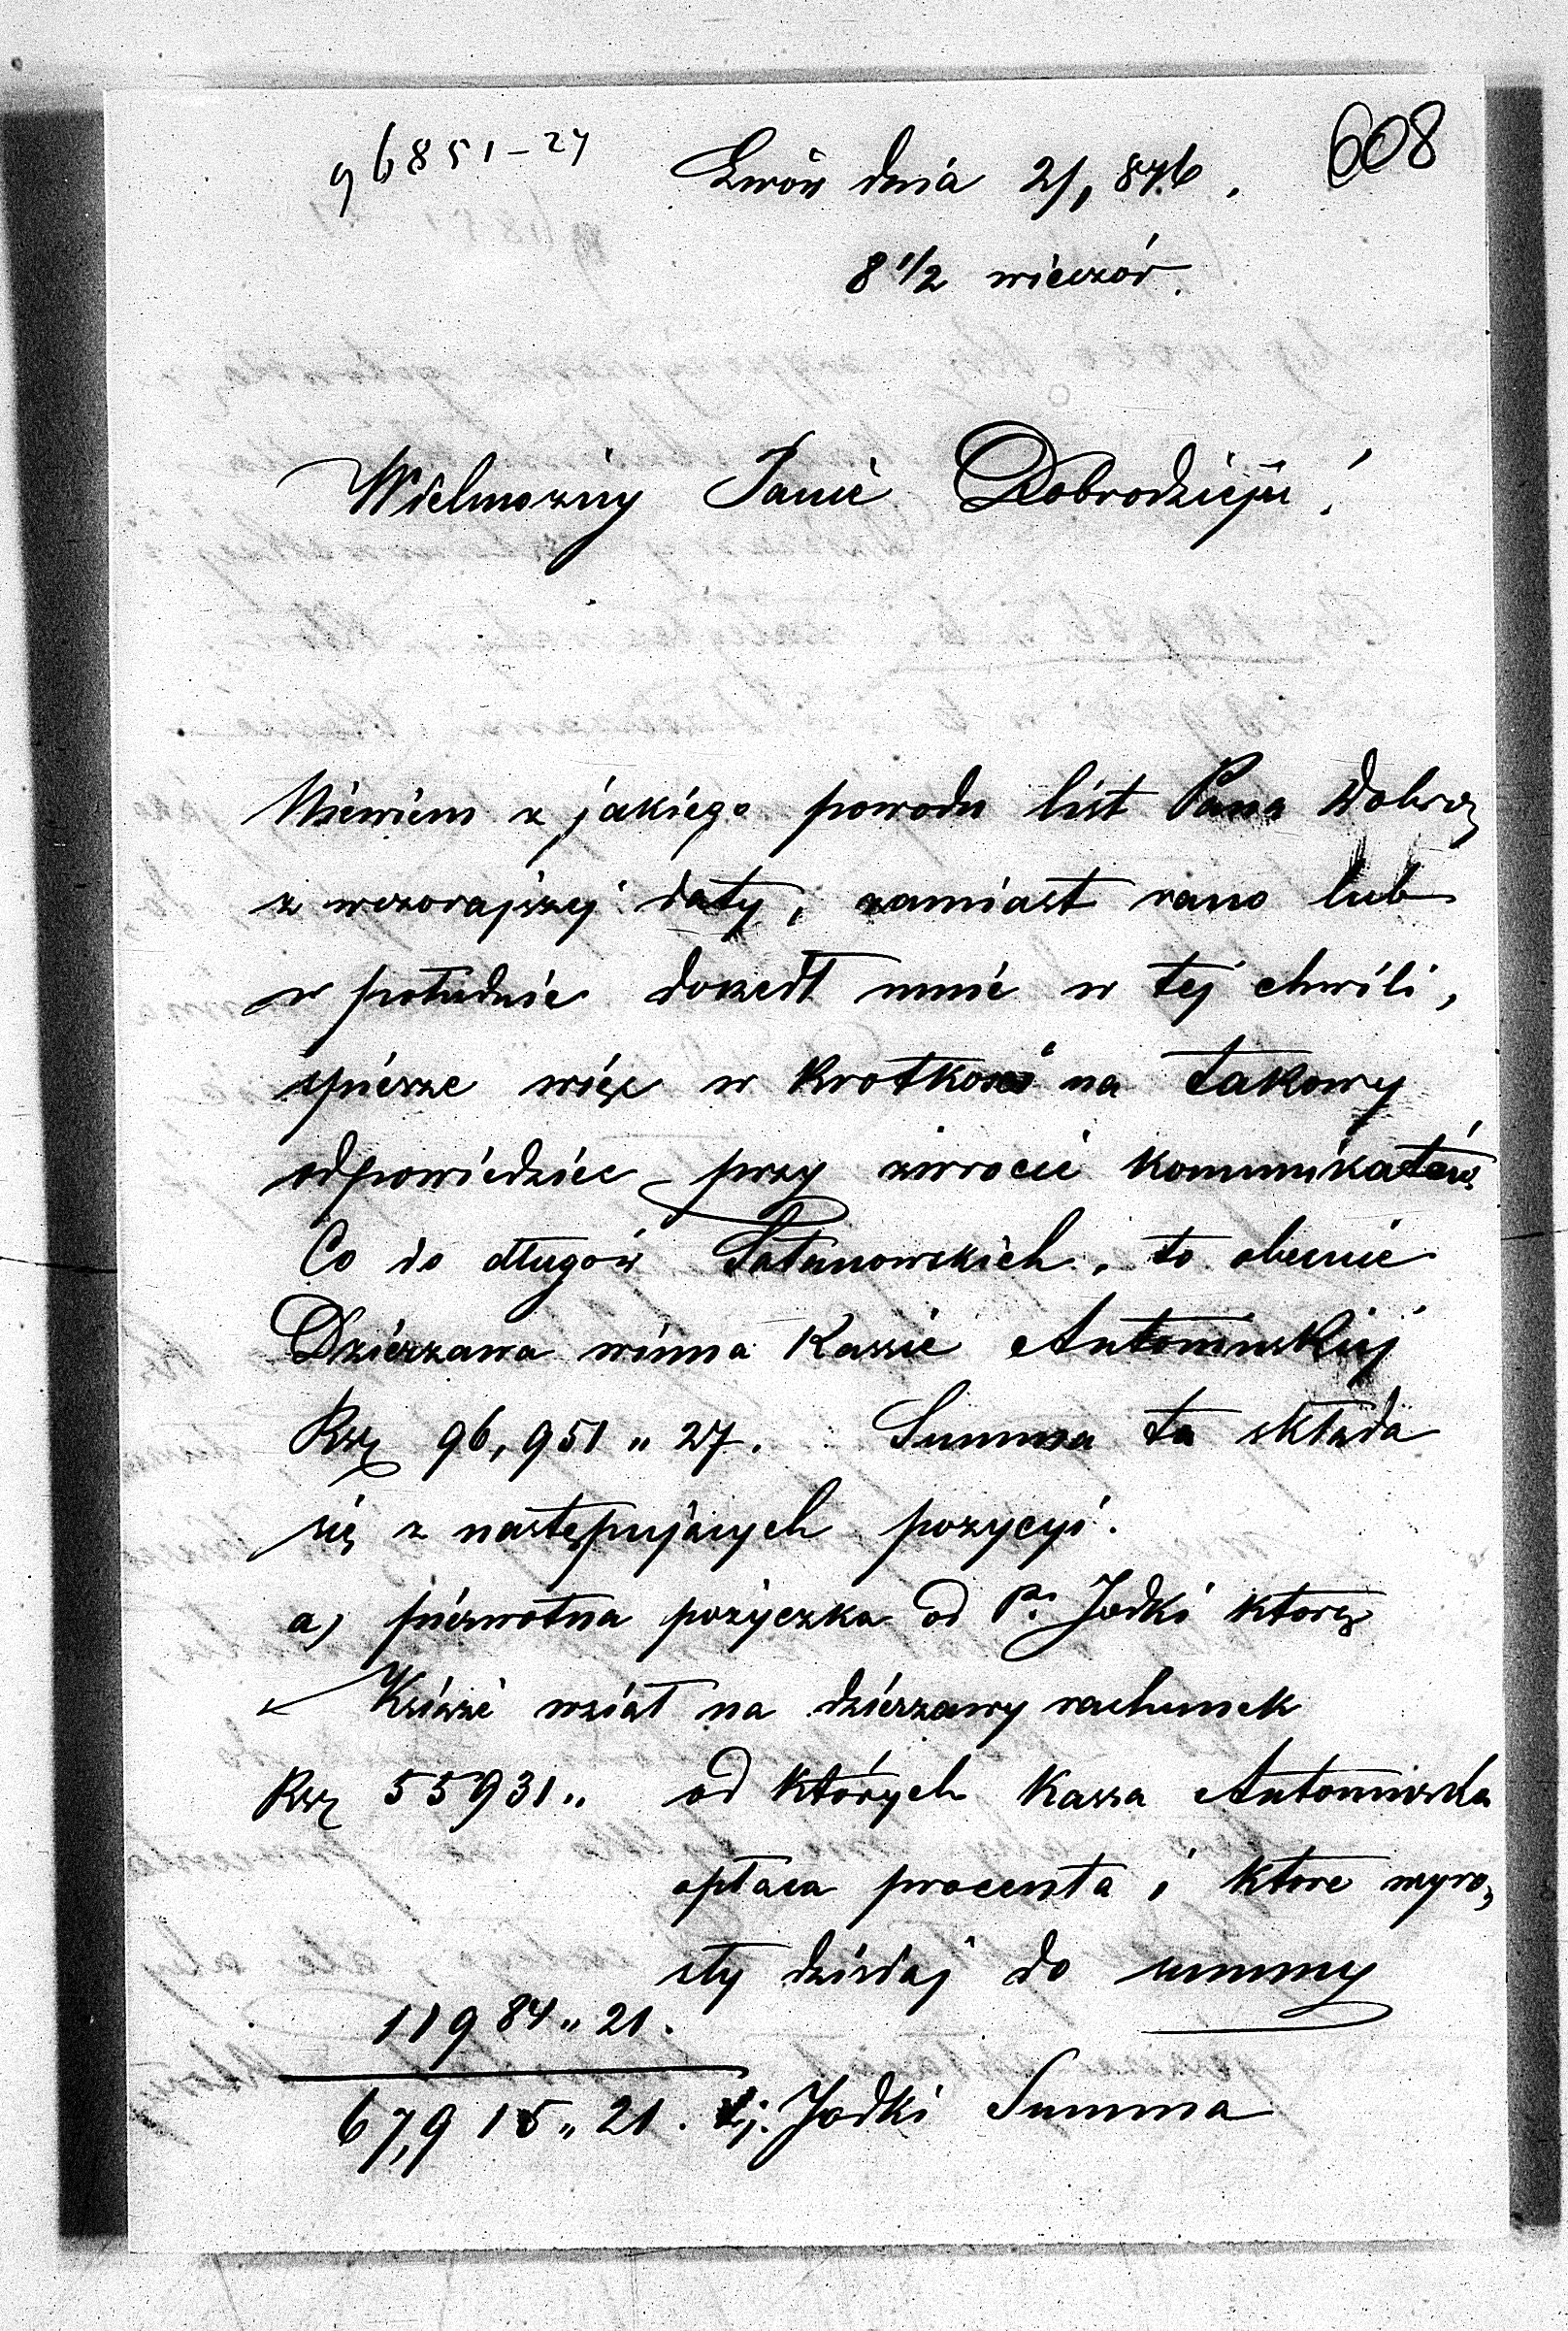 96851-27
608
Lwów dnia 2/1 876.
8 1/2 wieczór.
Wielmożny Panie Dobrodzieju!
Niewiem z jakiego powodu list Pana Dobrdz
z wczorajszej daty, zamiast rano lub
w południe doszedł mnie w tej chwili,
spiesze więc w krotkości na takowy
odpowiedziec przy zwrocie komunikatów.
Co do długów Satanowskich, to obecnie
Dzierzawa winna Kassie Antonińskiej
Rsr 96,951 „ 27. Summa ta składa
się z następujących pozycyi.
a) pierwotna pożyczka od P. Jodki ktorą
Książe wziął na dzierzawy rachunek
Rsr 55931 „ od których Kassa Antonińska
opłaca procenta i ktore wyro,
sły dzisiaj do summy
11984 „ 21.
67,915 „ 21. tj. Jodki Summa